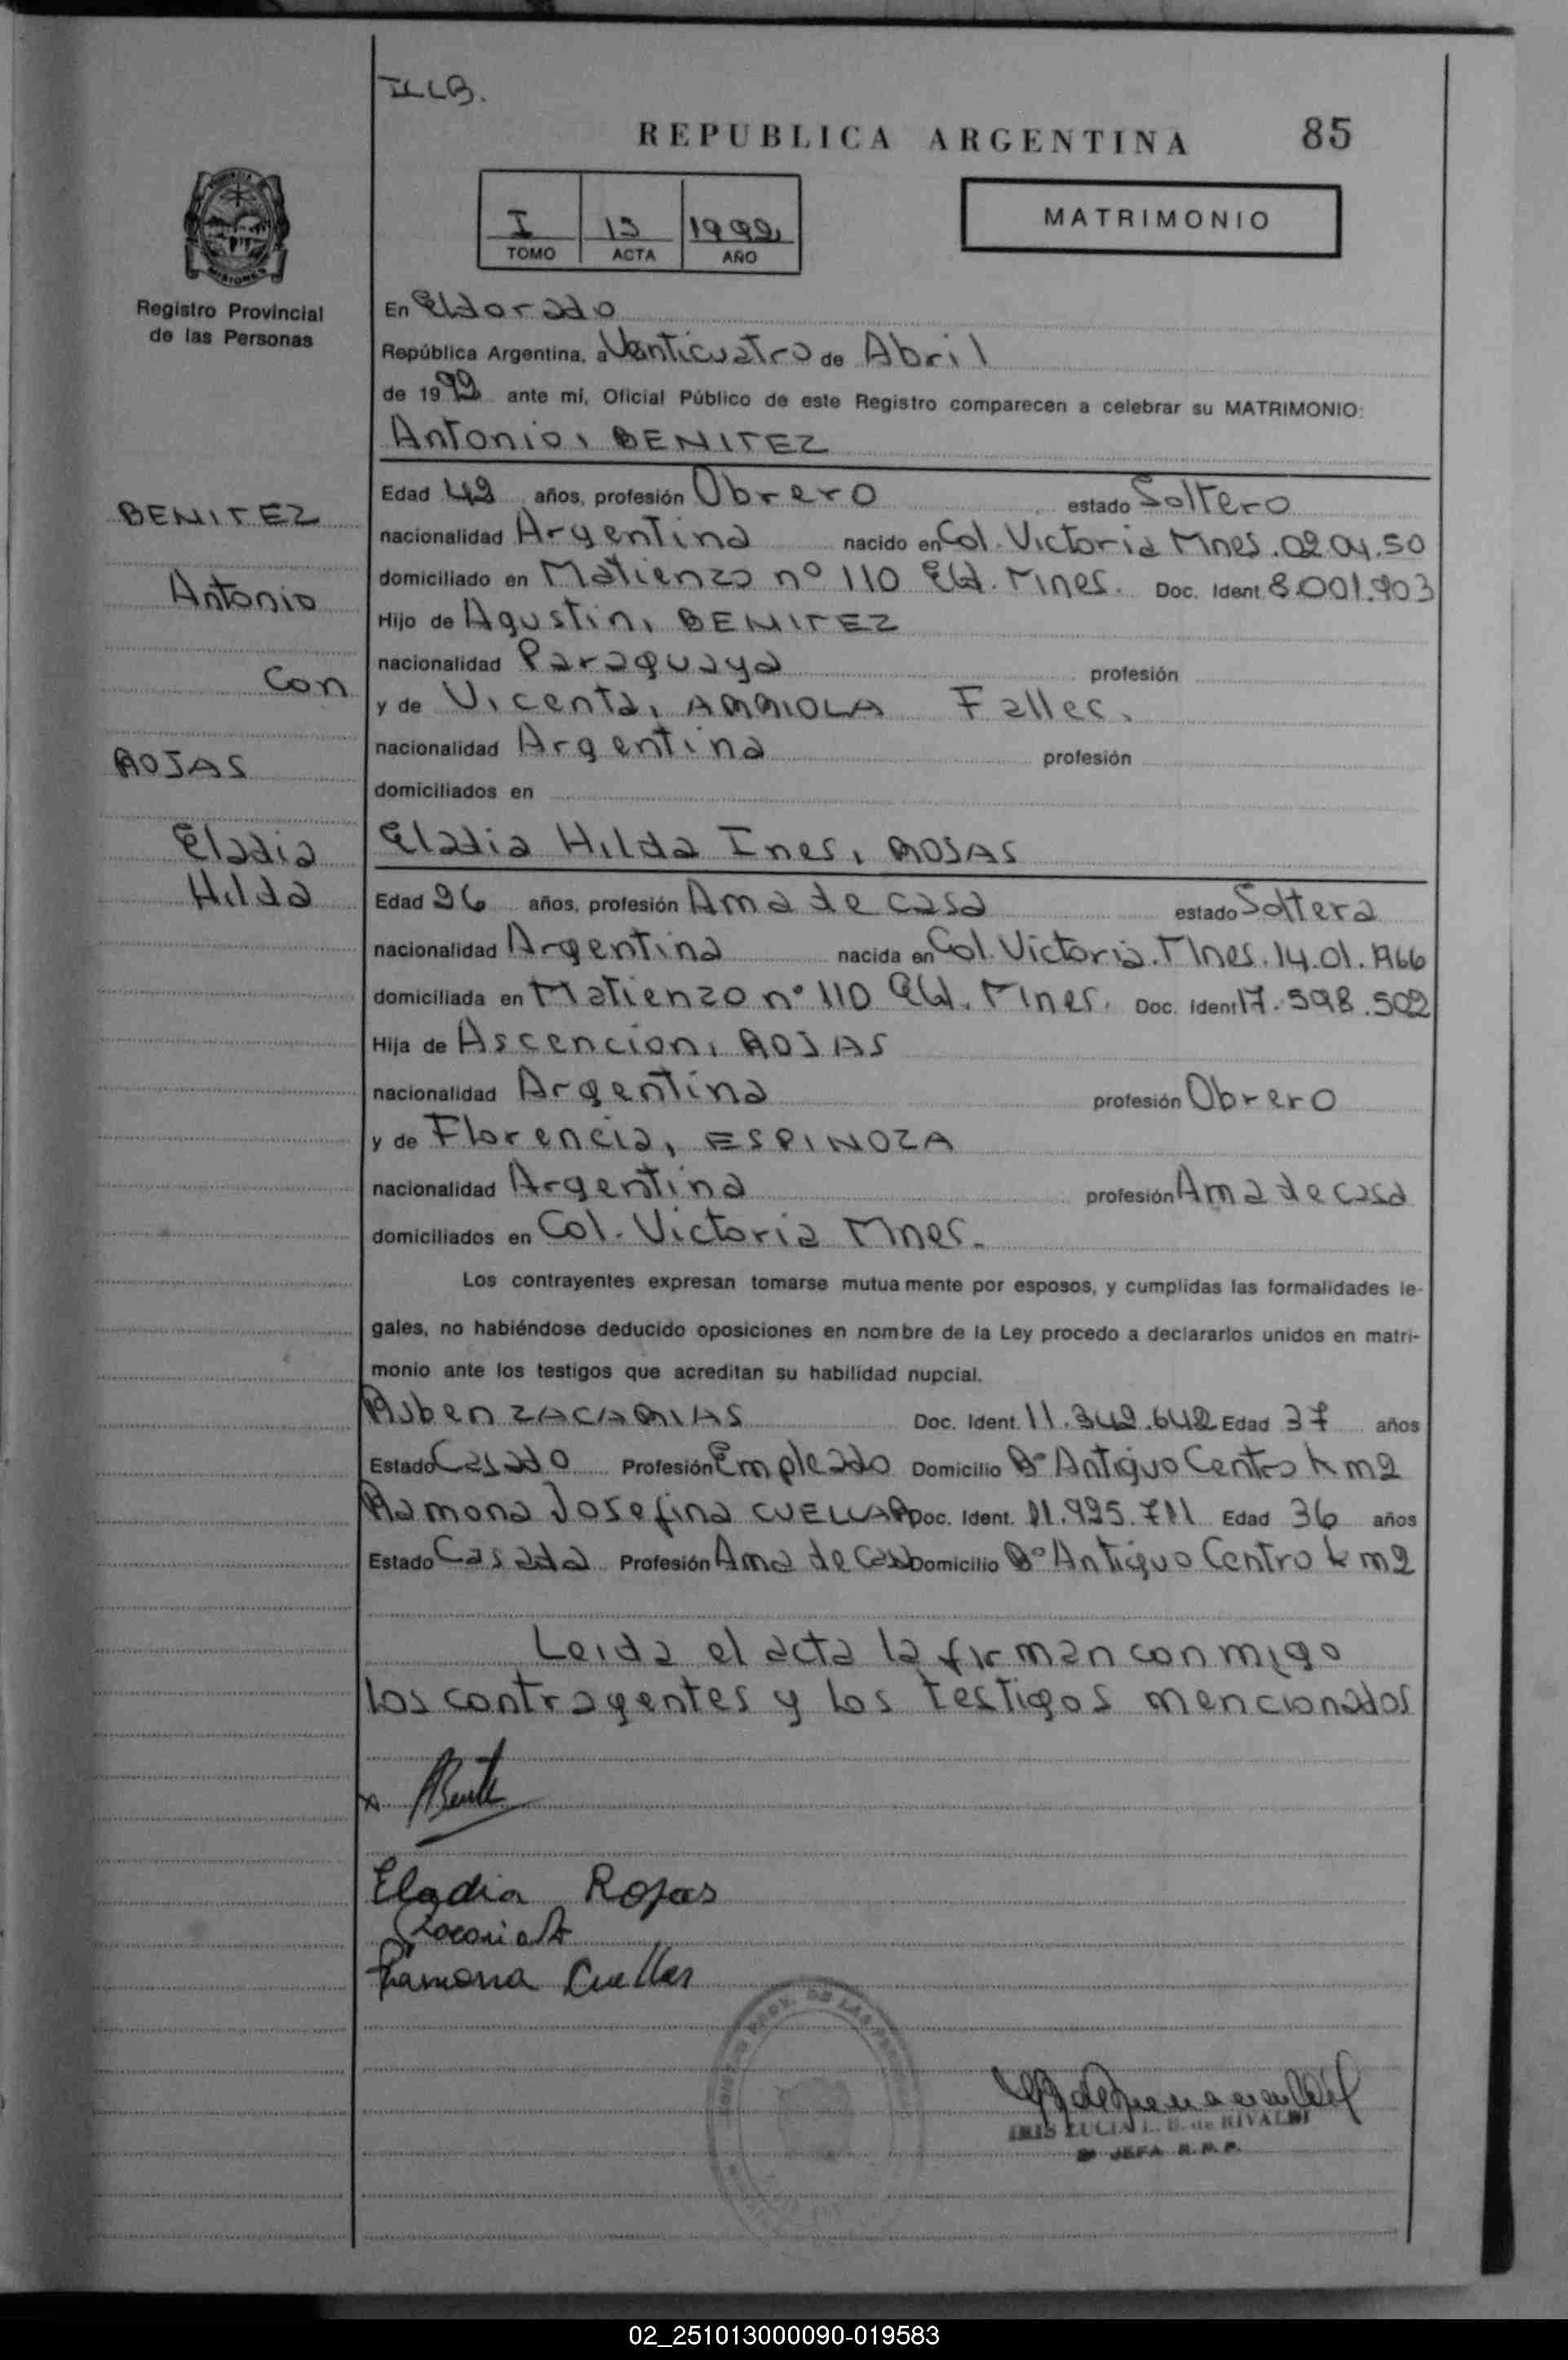 ILLB.
REPUBLICA ARGENTINA 85
I 13 1992
TOMO ACTA AÑO
MATRIMONIO
MISIONES
Registro Provincial
de las Personas
En Eldorado
República Argentina, a Venticuatro de Abril
de 1992 ante mí, Oficial Público de este Registro comparecen a celebrar su MATRIMONIO:
Antonio, BENITEZ
BENITEZ
Antonio
Con
ROJAS
Eladia
Hilda
Edad 42 años, profesión Obrero estado Soltero
nacionalidad Argentina nacido en Col. Victoria Mnes. 02.04.50
domiciliado en Matienzo nº 110 Eld. Mnes. Doc. Ident. 8.001.903
Hijo de Agustin, BENITEZ
nacionalidad Paraguaya profesión
y de Vicenta, ARRIOLA Fallec.
nacionalidad Argentina profesión
domiciliados en
Eladia Hilda Ines, ROJAS
Edad 26 años, profesión Ama de casa estado Soltera
nacionalidad Argentina nacida en Col. Victoria. Mnes. 14.01.1966
domiciliada en Matienzo nº 110 Eld. Mnes. Doc. Ident 17.598.502
Hija de Ascencion, ROJAS
nacionalidad Argentina profesión Obrero
y de Florencia, ESPINOZA
nacionalidad Argentina profesión Ama de casa
domiciliados en Col. Victoria Mnes.
Los contrayentes expresan tomarse mutuamente por esposos, y cumplidas las formalidades le-
gales, no habiéndose deducido oposiciones en nombre de la Ley procedo a declararlos unidos en matri-
monio ante los testigos que acreditan su habilidad nupcial.
Ruben ZACARIAS Doc. Ident. 11.342.642 Edad 37 años
Estado Casado Profesión Empleado Domicilio Bº Antiguo Centro km2
Ramona Josefina CUELLAR Doc. Ident. 11.995.711 Edad 36 años
Estado Casada Profesión Ama de Casa Domicilio Bº Antiguo Centro km2
Leida el acta la firman conmigo
los contrayentes y los testigos mencionados
x ABenite
Eladia Rojas
Ramona Cuellar
IRIS LUCIA L. B. de RIVALDI
JEFA R.P.P.
02_251013000090-019583